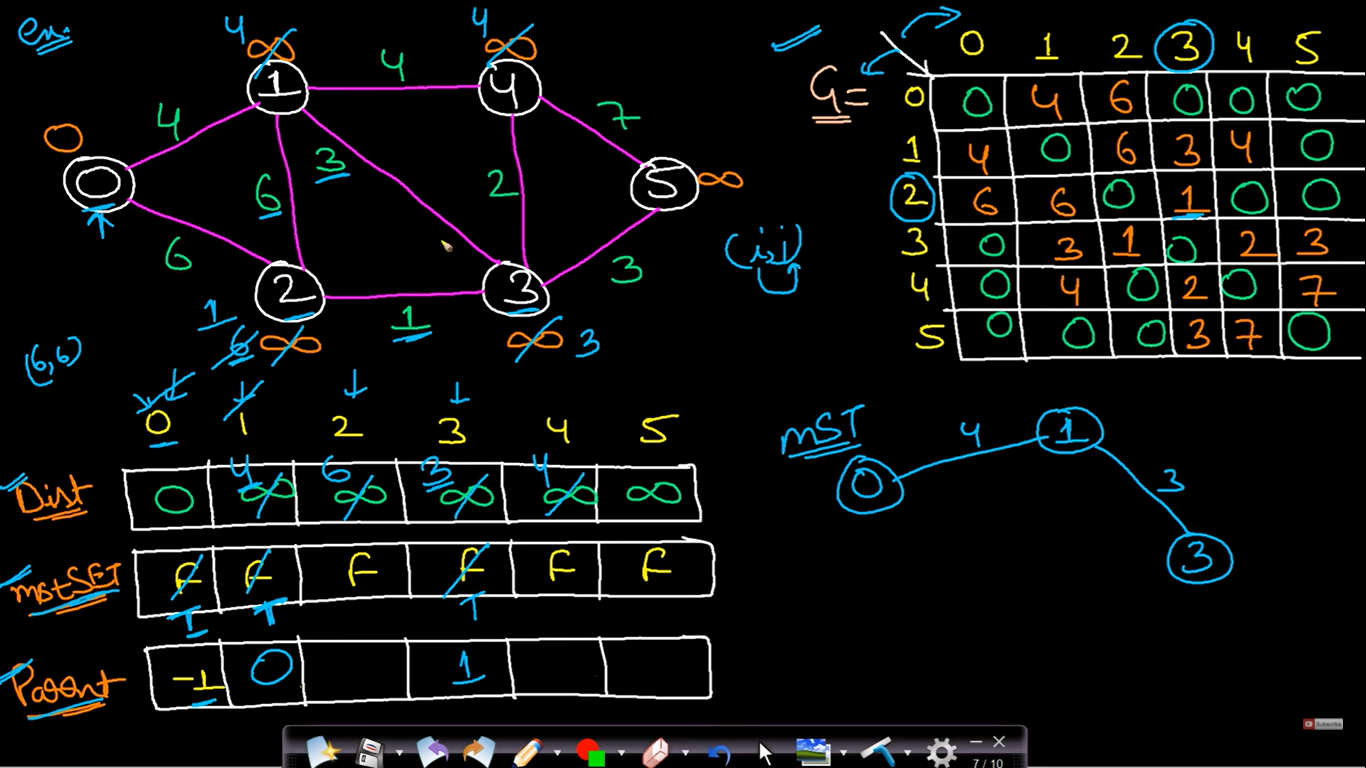 ex:
4 ∞ 4 4 ∞
1 4
4 3 6 2 7
0 0 5 ∞
6 2 1 3 3
1 6 ∞ ∞ 3
(6,6)
(i,j)
G =
0 1 2 3 4 5
0 0 4 6 0 0 0
1 4 0 6 3 4 0
2 6 6 0 1 0 0
3 0 3 1 0 2 3
4 0 4 0 2 0 7
5 0 0 0 3 7 0
0 1 2 3 4 5
4 6 3 4
Dist 0 ∞ ∞ ∞ ∞ ∞
mstSET F F F F F F
T T T
Parent -1 0 1
MST
0 4 1
3
3
Subscribe
7 / 10